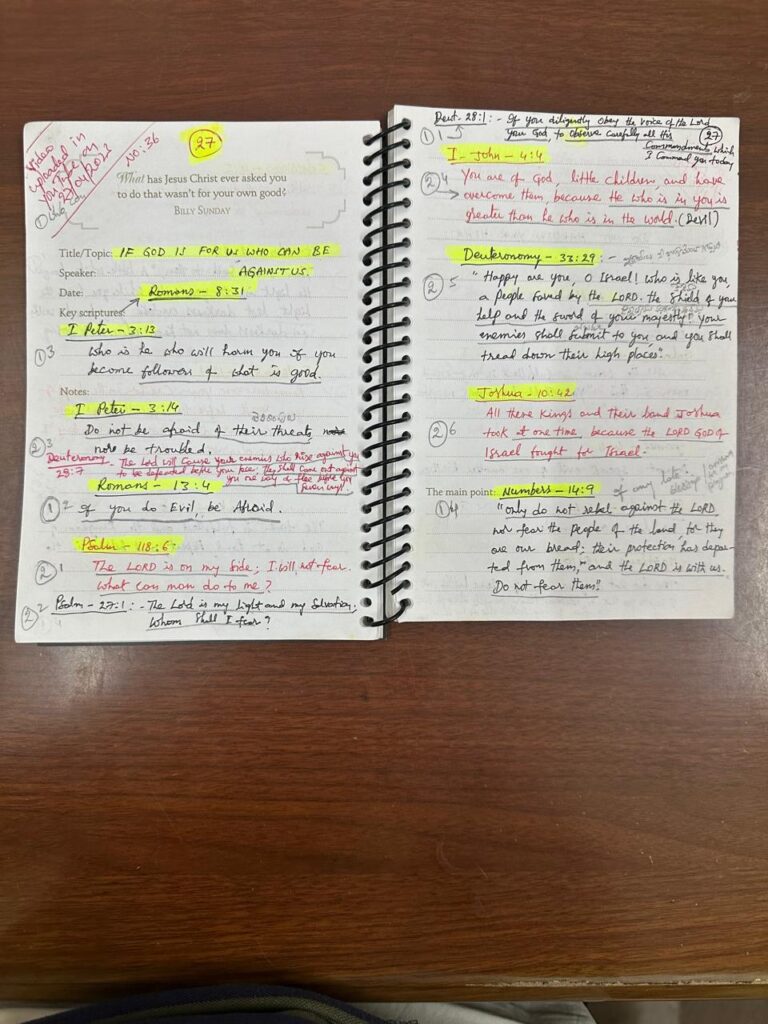 Video
uploaded in
You Tube on
27/04/2023
NO: 36
27
What has Jesus Christ ever asked you
to do that wasn't for your own good?
BILLY SUNDAY
Title/Topic: IF GOD IS FOR US WHO CAN BE
Speaker: AGAINST US.
Date: Romans - 8:31
Key scriptures:
I Peter - 3:13
① 3 Who is he who will harm you if you
become followers of what is good.
Notes:
I Peter - 3:14
Do not be afraid of their threats,
② 3 nore be troubled.
Deuteronomy The Lord will Cause your enemies who Rise against you
28:7 to be defeated before your face; they shall Come out against
you one way & flee before you
Seven ways.
Romans - 13:4
① 2 If you do Evil, be Afraid.
Psalm - 118:6
② 1 The LORD is on my Side; I will not fear.
What can man do to me?
② 2 Psalm - 27:1: - The Lord is my Light and my Salvation;
Whom Shall I fear?
Deut. 28:1: - If you diligently obey the voice of the Lord
① 1 your God, to observe Carefully all His 27
Commandments which
I Command you today
I - John - 4:4
② 4 You are of God, little children, and have
overcome them, because He who is in you is
greater than he who is in the world. (Devil)
Deuteronomy - 33:29: -
② 5 "Happy are you, O Israel! Who is like you,
a people saved by the LORD. the Shield of your
help and the sword of your majesty! your
enemies shall Submit to you, and you shall
tread down their high places".
Joshua - 10:42
All these Kings and their land Joshua
② 6 took at one time, because the LORD GOD of
Israel fought for Israel.
The main point: Numbers - 14:9
① 4 "Only do not rebel against the LORD,
nor fear the people of the land, for they
are our bread; their protection has depar-
ted from them," and the LORD is with us.
Do not fear them".